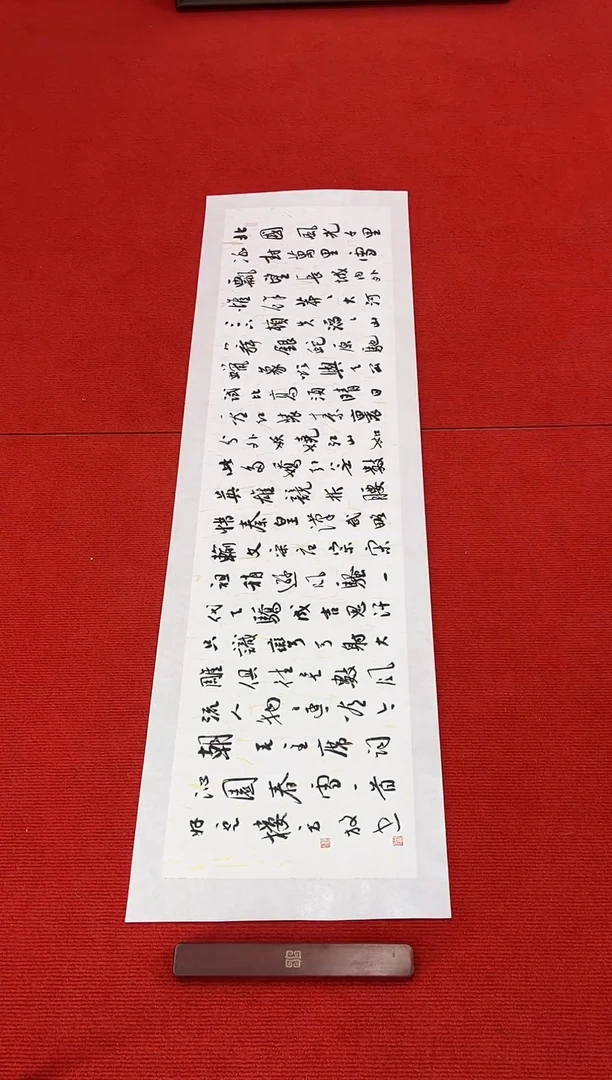 北國風光千里
冰封萬里雪
飄望長城内外
惟餘莽々大河
上下頓失滔々山
舞銀蛇原馳
蠟象欲與天公
試比高須晴日
看红裝素裹
分外妖嬈江山如
此多嬌引無數
英雄競折腰
惜秦皇漢武略
輸文采唐宗宋
祖稍遜風騷一
代天驕成吉思汗
只識彎弓射大
雕俱往矣數風
流人物還看今
朝毛主席詞
沁園春雪一首